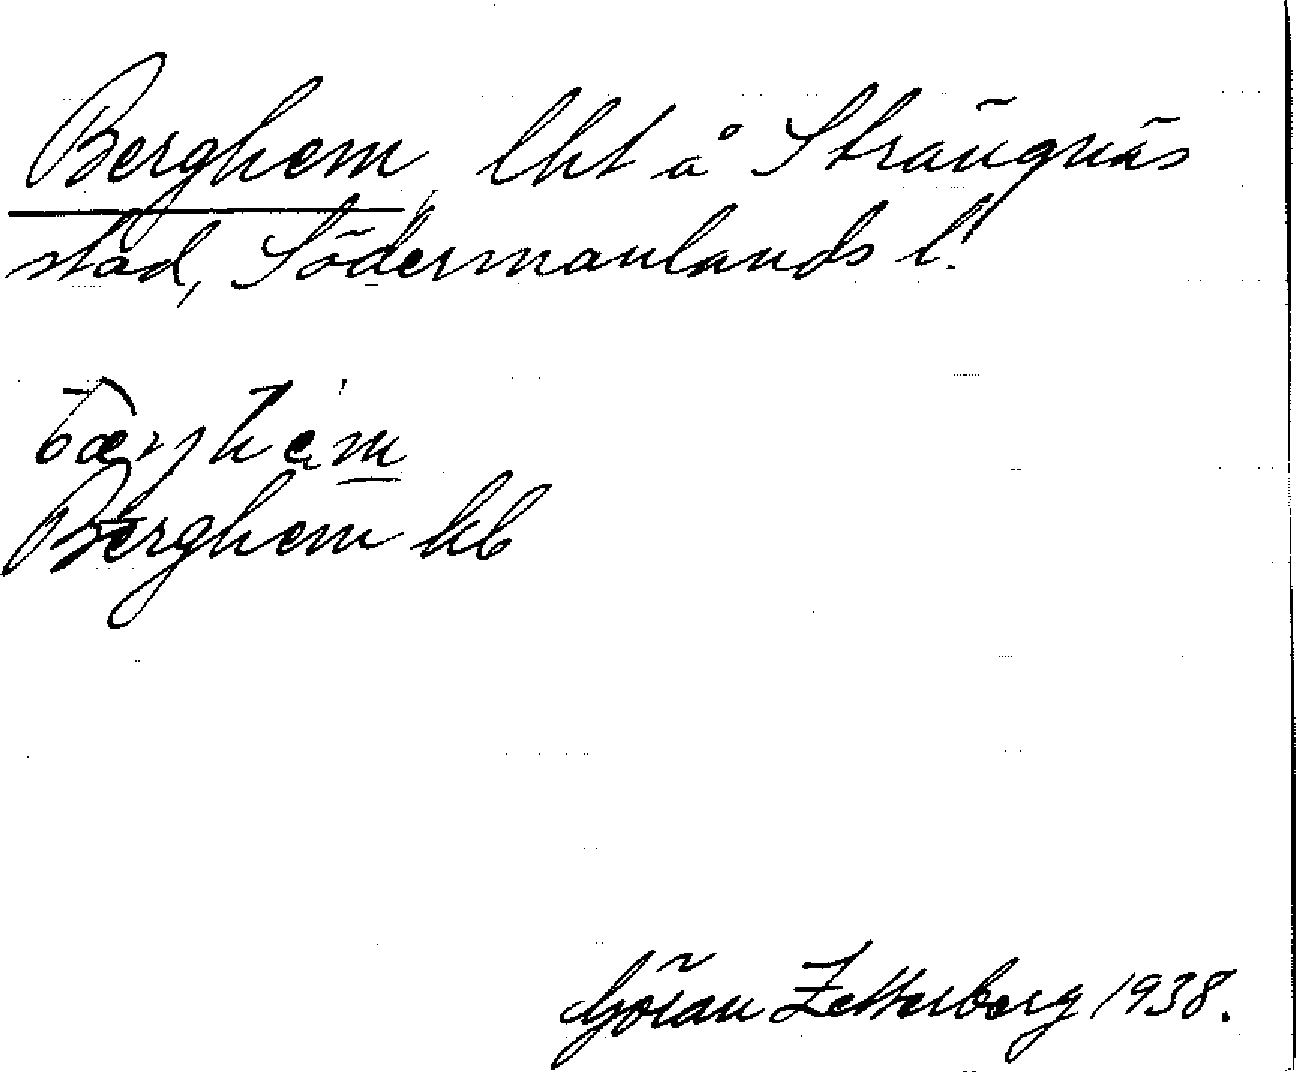 Berghem, lht å Strängnäs
stad, Södermanlands l.
Berghem kb
Göran Zetterberg 1938.